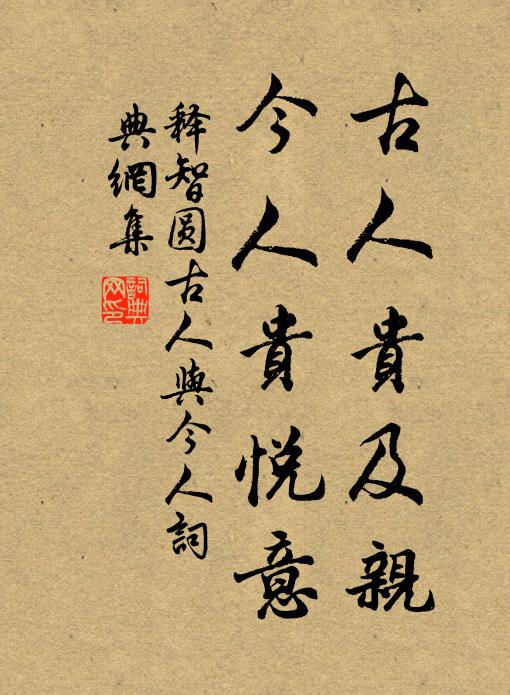 古人貴及親
今人貴悅意
释智圆古人與今人詞
典網集
詞典
网印